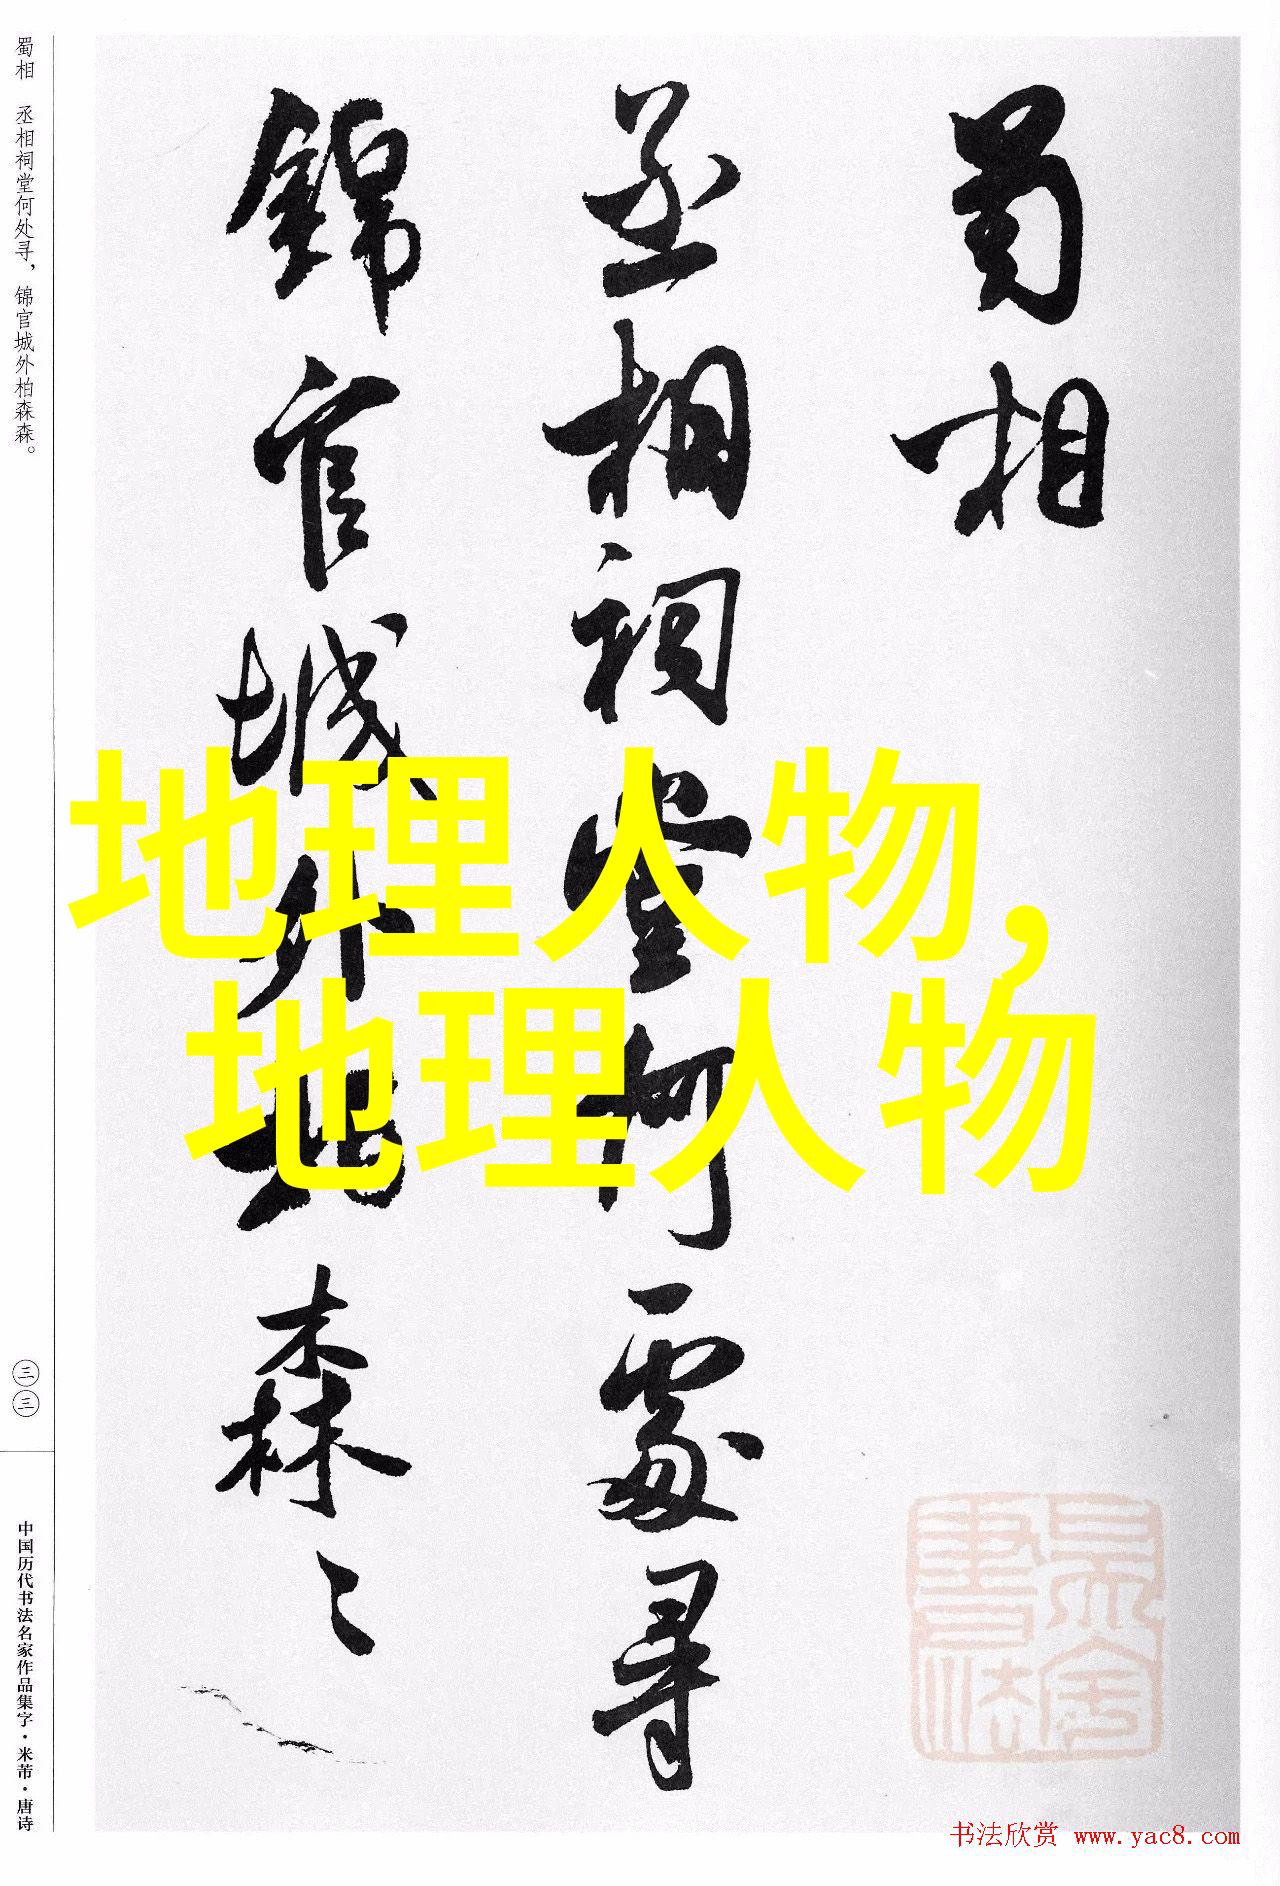 蜀相
丞相祠堂何處尋
錦官城外柏森〻
地理人物，
地理人物
蜀相 丞相祠堂何处寻，锦官城外柏森森。
三三
中国历代书法名家作品集字·米芾·唐诗
书法欣赏 www.yac8.com